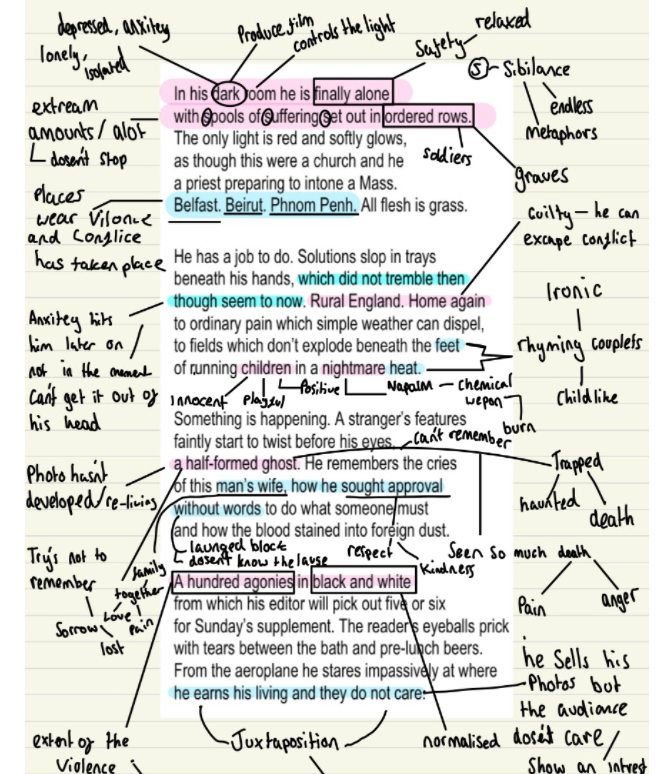 depressed, anxitey
lonely,
isolated
Produce film
controls the light
Safety
relaxed
S - Sibilance
endless
metaphors
In his dark room he is finally alone
with spools of suffering set out in ordered rows.
The only light is red and softly glows,
as though this were a church and he
a priest preparing to intone a Mass.
Belfast. Beirut. Phnom Penh. All flesh is grass.
extream
amounts/ alot
dosen't stop
soldiers
graves
Places
wear Vilonce
and Conflice
has taken place
Guilty - he can
excape conflict
He has a job to do. Solutions slop in trays
beneath his hands, which did not tremble then
though seem to now. Rural England. Home again
to ordinary pain which simple weather can dispel,
to fields which don't explode beneath the feet
of running children in a nightmare heat.
Anxitey hits
him later on
not in the moment
Can't get it out of
his head
Ironic
rhyming couplets
Childlike
innocent
Playful
Positive
Napalm - Chemical
wepon
burn
Something is happening. A stranger's features
faintly start to twist before his eyes,
can't remember
a half-formed ghost. He remembers the cries
of this man's wife, how he sought approval
without words to do what someone must
and how the blood stained into foreign dust.
Photo hasn't
developed/re-living
Trapped
haunted
death
launged block
dosent know the lause
respect
Kindness
Seen so much death
Pain
anger
Try's not to
remember
Sorrow
lost
family
together
Love
Pain
A hundred agonies in black and white
from which his editor will pick out five or six
for Sunday's supplement. The reader's eyeballs prick
with tears between the bath and pre-lunch beers.
From the aeroplane he stares impassively at where
he earns his living and they do not care.
he Sells his
Photos but
the audiance
dose't care
Show an intrest
extent of the
Violence
Juxtaposition
normalised